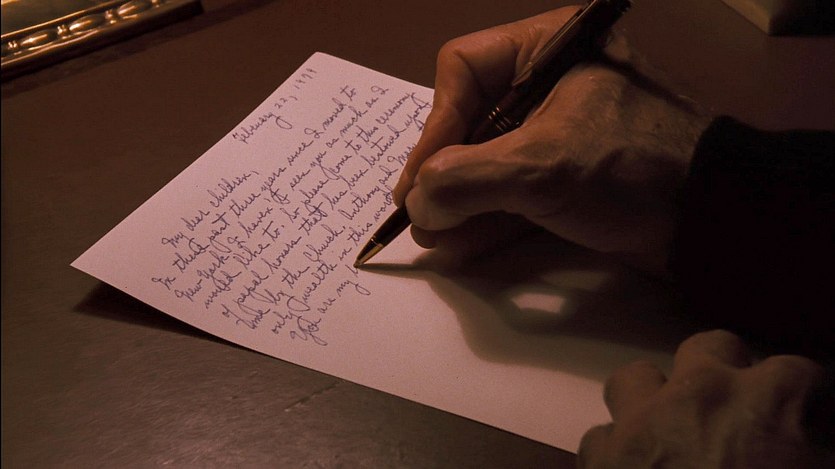 February 22,
My dear children,
In these past three years since I moved to
New York I haven't seen you as much as I
would like to. So please come to this ceremony
of papal honors that has been bestowed upon
by the Church. Anthony and
only wealth in this
You are my